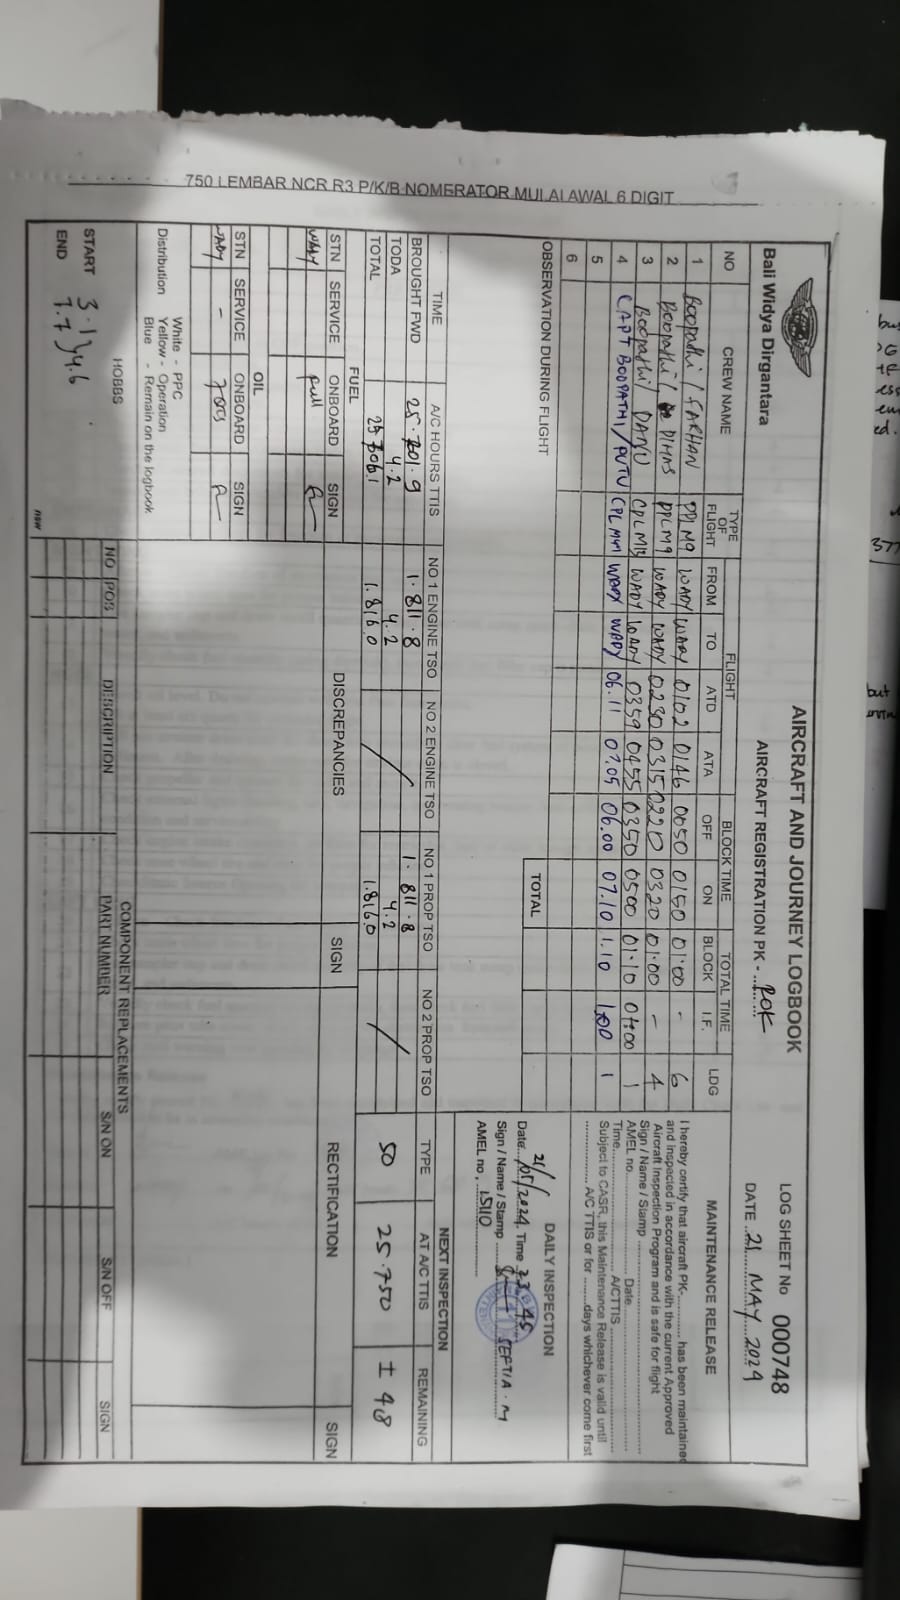 750 LEMBAR NCR R3 P/K/B NOMERATOR MULAI AWAL 6 DIGIT
AIRCRAFT AND JOURNEY LOGBOOK
LOG SHEET No 000748
Bali Widya Dirgantara
AIRCRAFT REGISTRATION PK - ROK
DATE 21 MAY 2024
NO CREW NAME TYPE OF FLIGHT FLIGHT BLOCK TIME TOTAL TIME LDG
FROM TO ATD ATA OFF ON BLOCK I.F.
1 Boopathi / FARHAN PPL M9 WADY WADY 0102 0146 0050 0150 01:00 - 6
2 Boopathi / DIMAS PPL M9 WADY WADY 0230 0315 0220 0320 01:00 - 4
3 Boopathi / DANU CPL M13 WADY WADY 0359 0455 0350 0500 01:10 01:00 1
4 CAPT BOOPATHI / PUTU CPL WADY WADY 06.11 07.05 06.00 07.10 1.10 1.00 1
5
6
TOTAL
OBSERVATION DURING FLIGHT
MAINTENANCE RELEASE
I hereby certify that aircraft PK-............ has been maintained
and inspected in accordance with the current Approved
Aircraft Inspection Program and is safe for flight
Sign / Name / Stamp
AMEL no. Date
Time A/CTTIS
Subject to CASR, this Maintenance Release is valid until
A/C TTIS or for ........days whichever come first
DAILY INSPECTION
Date 21/05/2024 Time 23.45
Sign / Name / Stamp SEPTIA . M
AMEL no. 15110
TIME A/C HOURS TTIS NO 1 ENGINE TSO NO 2 ENGINE TSO NO 1 PROP TSO NO 2 PROP TSO
BROUGHT FWD 25.701.9 1.811.8 1.811.8
TODA 4.2 4.2 4.2
TOTAL 25.706.1 1.816.0 1.816.0
NEXT INSPECTION
TYPE AT A/C TTIS REMAINING
50 25.750 ± 48
FUEL
STN SERVICE ONBOARD SIGN
WADY full
OIL
STN SERVICE ONBOARD SIGN
WADY - 7
DISCREPANCIES SIGN RECTIFICATION SIGN
Distribution White - PPC
Yellow - Operation
Blue - Remain on the logbook
COMPONENT REPLACEMENTS
NO POS DESCRIPTION PART NUMBER S/N ON S/N OFF SIGN
HOBBS
START 3.1 } 4.6
END 7.7
new
377
but